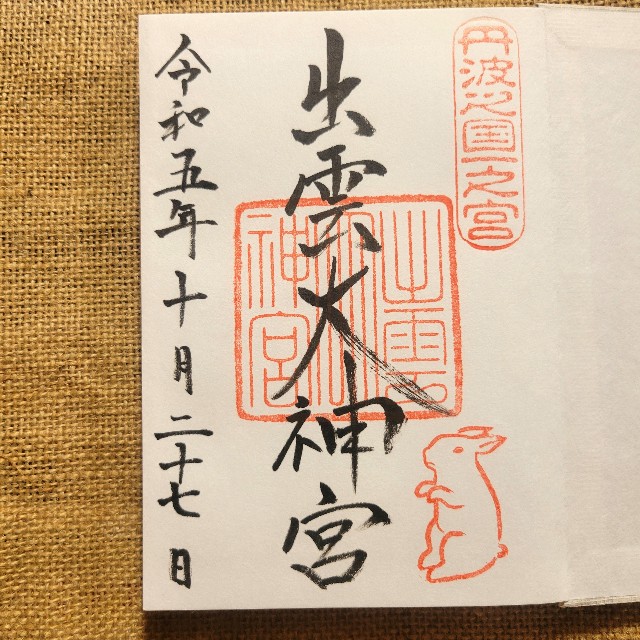 丹波之國一之宮
出雲大神宮
出雲大神宮
令和五年十月二十七日